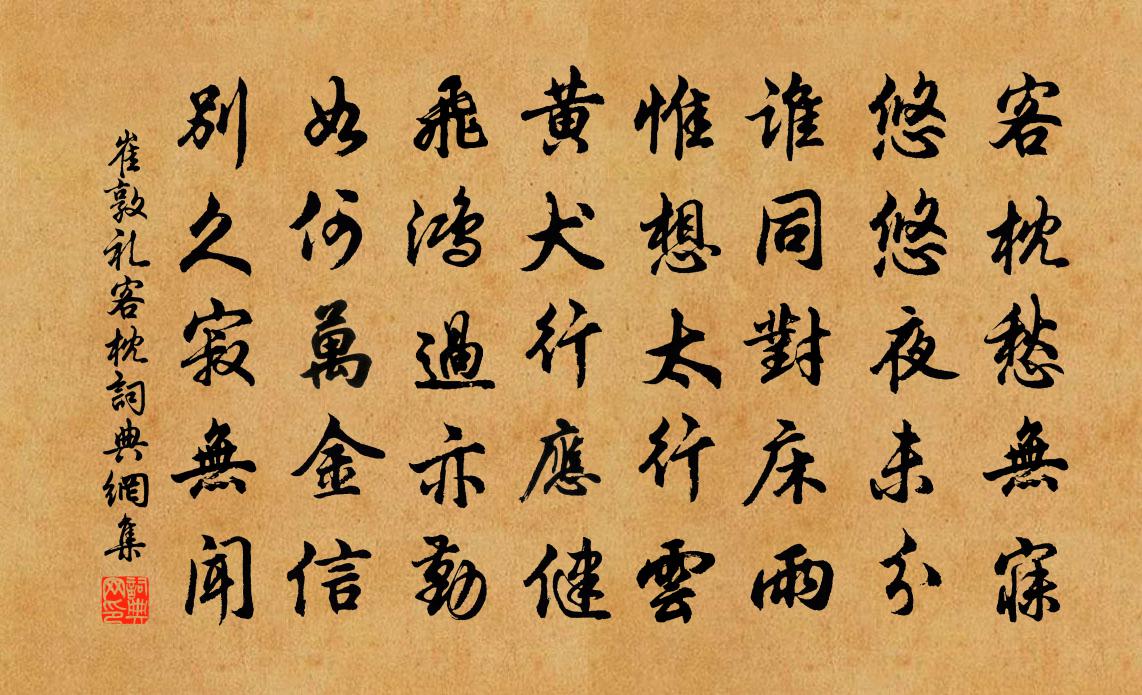 客枕愁無寐
悠悠夜未分
誰同對床雨
惟想太行雲
黃犬行應健
飛鴻過亦勤
如何萬金信
別久寂無聞
崔敦礼客枕詞典網集
詞典网印